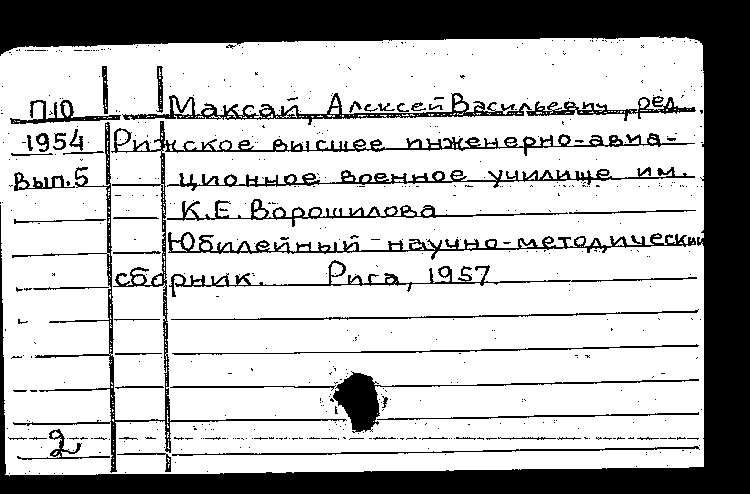 П10 Максай, Алексей Васильевич, ред.
1954 Рижское высшее инженерно-авиа-
Вып.5 ционное военное училище им.
К.Е. Ворошилова
Юбилейный научно-методический
сборник. Рига, 1957
2